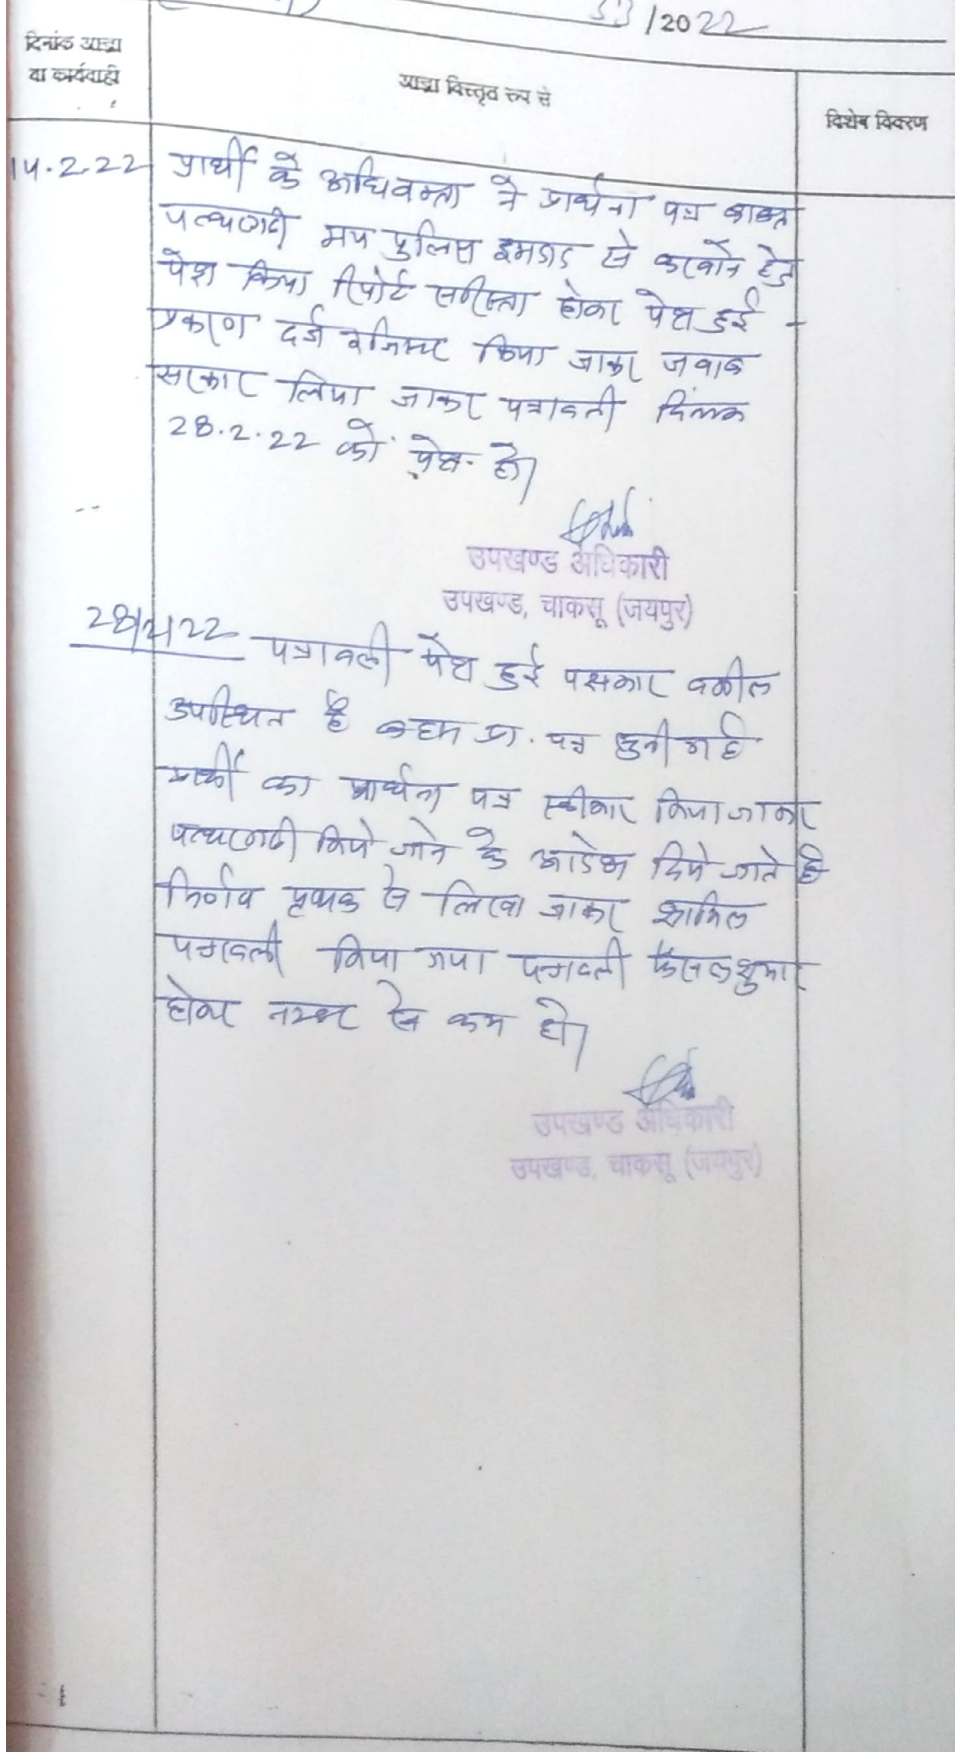 53/2022
दिनांक आज्ञा
वा कार्यवाही
आज्ञा विस्तृत रूप से
विशेष विवरण
14.2.22 प्रार्थी के अधिवक्ता ने प्रार्थना पत्र बाबत
पत्थगढी मय पुलिस इमदाद से करवाने हेतु
पेश किया रिपोर्ट सरिस्ता होकर पेश हुई -
प्रकरण दर्ज रजिस्टर किया जाकर जवाब
सरकार लिया जाकर पत्रावली दिनांक
28.2.22 को पेश हो।
उपखण्ड अधिकारी
उपखण्ड, चाकसू (जयपुर)
28/2/22 पत्रावली पेश हुई पक्षकार वकील
उपस्थित है बहस प्रा. पत्र सुनी गई
प्रार्थी का प्रार्थना पत्र स्वीकार किया जाकर
पत्थरगढी किये जाने के आदेश दिये जाते है
निर्णय पृथक से लिखा जाकर शामिल
पत्रावली किया गया पत्रावली फैसलशुमार
होकर नम्बर से कम हो।
उपखण्ड अधिकारी
उपखण्ड, चाकसू (जयपुर)